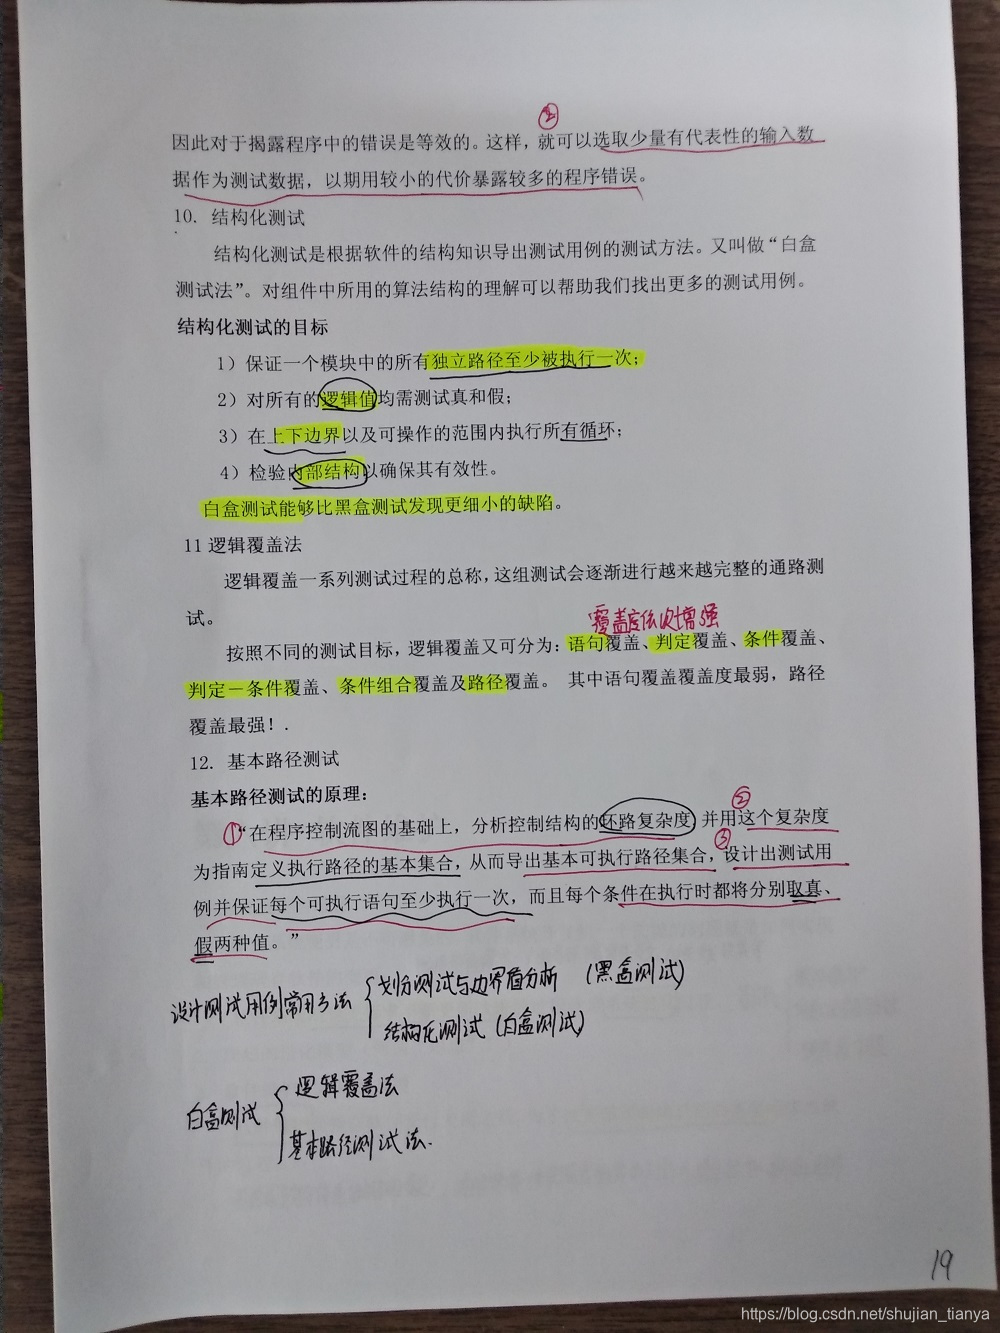 ②
因此对于揭露程序中的错误是等效的。这样，就可以选取少量有代表性的输入数
据作为测试数据，以期用较小的代价暴露较多的程序错误。
10. 结构化测试
结构化测试是根据软件的结构知识导出测试用例的测试方法。又叫做“白盒
测试法”。对组件中所用的算法结构的理解可以帮助我们找出更多的测试用例。
结构化测试的目标
1）保证一个模块中的所有独立路径至少被执行一次；
2）对所有的逻辑值均需测试真和假；
3）在上下边界以及可操作的范围内执行所有循环；
4）检验内部结构以确保其有效性。
白盒测试能够比黑盒测试发现更细小的缺陷。
11 逻辑覆盖法
逻辑覆盖一系列测试过程的总称，这组测试会逐渐进行越来越完整的通路测
试。
覆盖度依次增强
按照不同的测试目标，逻辑覆盖又可分为：语句覆盖、判定覆盖、条件覆盖、
判定－条件覆盖、条件组合覆盖及路径覆盖。 其中语句覆盖覆盖度最弱，路径
覆盖最强！.
12. 基本路径测试
基本路径测试的原理：
①“在程序控制流图的基础上，分析控制结构的环路复杂度 并用②这个复杂度
为指南定义执行路径的基本集合，从而导出基本可执行路径集合，③设计出测试用
例并保证每个可执行语句至少执行一次，而且每个条件在执行时都将分别取真、
假两种值。”
设计测试用例常用方法
划分测试与边界值分析 （黑盒测试）
结构化测试（白盒测试）
白盒测试
逻辑覆盖法
基本路径测试法.
19
https://blog.csdn.net/shujian_tianya